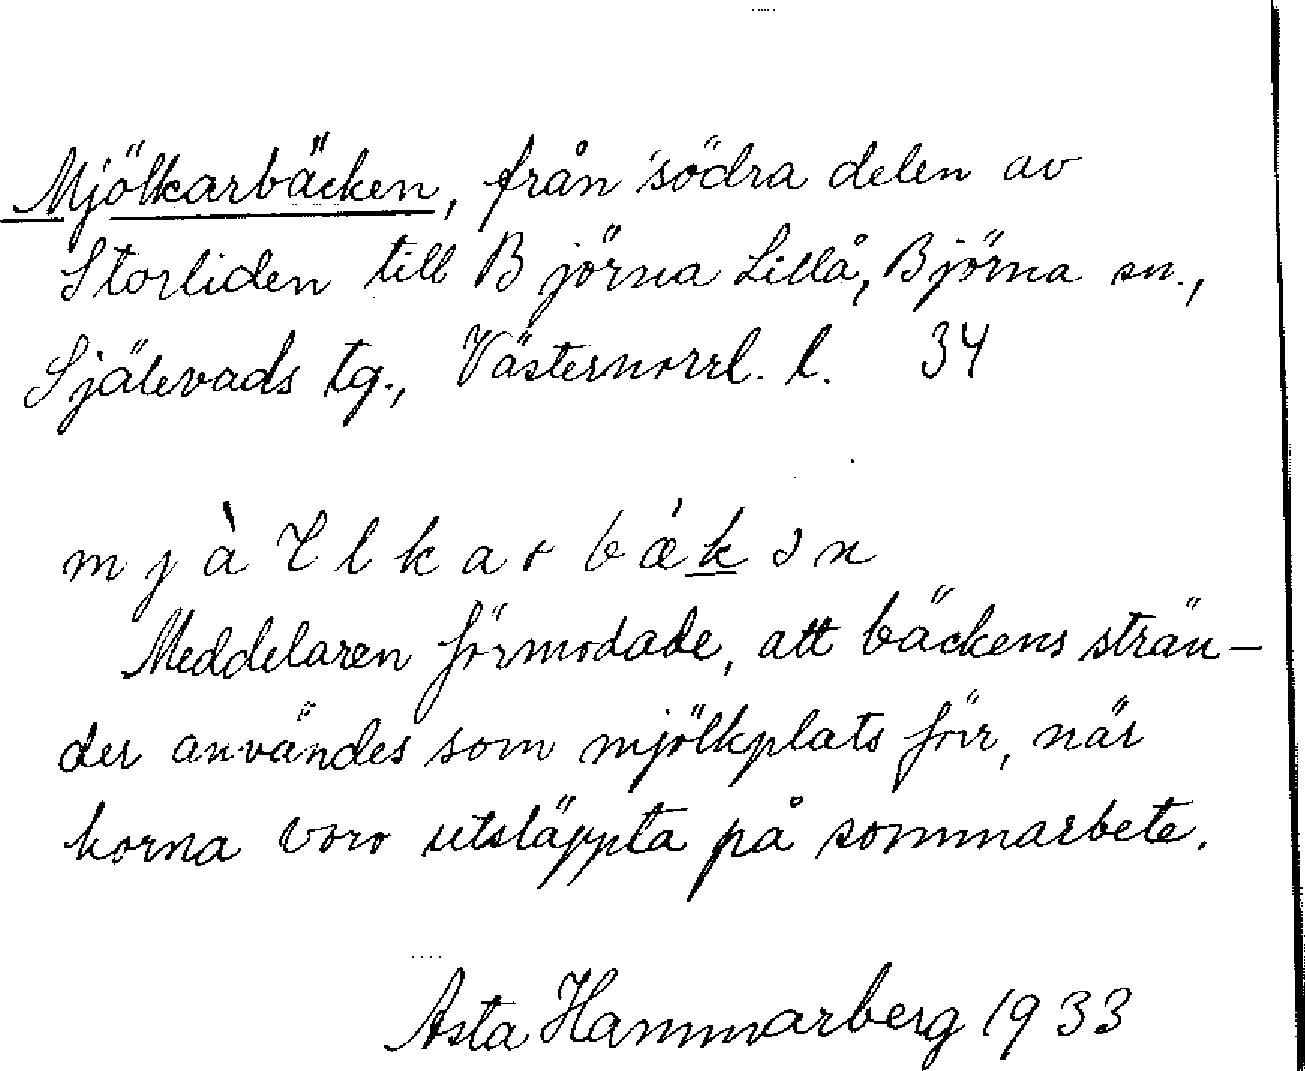 Mjölkarbäcken, från södra delen av
Storliden till Björna Lillå, Björna sn.,
Själevads tg., Västernorrl. l. 34
Meddelaren förmodade, att bäckens strän-
der användes som mjölkplats förr, när
korna voro utsläppta på sommarbete.
Asta Hammarberg 1933